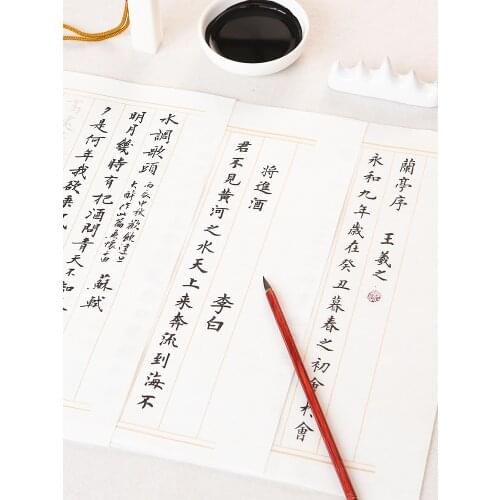 蘭亭序 王羲之
永和九年歲在癸丑暮春之初會 會
將進酒 李白
君不見黃河之水天上來奔流到海不
水調歌頭 丙辰中秋歡飲達旦
大醉作此篇兼懷子由 蘇軾
明月幾時有把酒問青天不知
夕是何年我欲乘